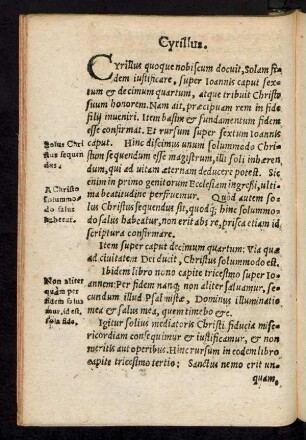 Cyrillus.
Cyrillus quoque nobiscum docuit, Solam fi-
dem iustificare, super Ioannis caput sex-
tum & decimum quartum, atque tribuit Christo
suum honorem. Nam ait, præcipuam rem in fide
filij inueniri. Item basim & fundamentum fidem
esse confirmat. Et rursum super sextum Ioannis
caput. Hinc discimus unum solummodo Chri-
stum sequendum esse magistrum, illi soli inhæren-
dum, qui ad uitam æternam deducere potest. Sic
enim in primo genitorum Ecclesiam ingressi, ultima
beatitudine perfruemur. Quòd autem so-
lus Christus sequendus sit, quodq; hinc solummo-
do salus habeatur, non erit abs re, prisca etiam id
scriptura confirmare.
Item super caput decimum quartum: Via quæ
ad ciuitatem Dei ducit, Christus solummodo est.
Ibidem libro nono capite tricesimo super Io-
annem: Per fidem nanq; non aliter saluamur, se-
cundum illud Psalmistæ, Dominus illuminatio
mea & salus mea, quem timebo &c.
Igitur solius mediatoris Christi fiducia mise-
ricordiam consequimur & iustificamur, & non
meritis aut operibus. Hinc rursum in eodem libro
capite tricesimo tertio: Sanctus nemo erit un-
quam,
Solus Chri
stus sequen
dus.
A Christo
solummo-
do salus
habetur.
Non aliter
quàm per
fidem salua
mur, id est,
sola fide.